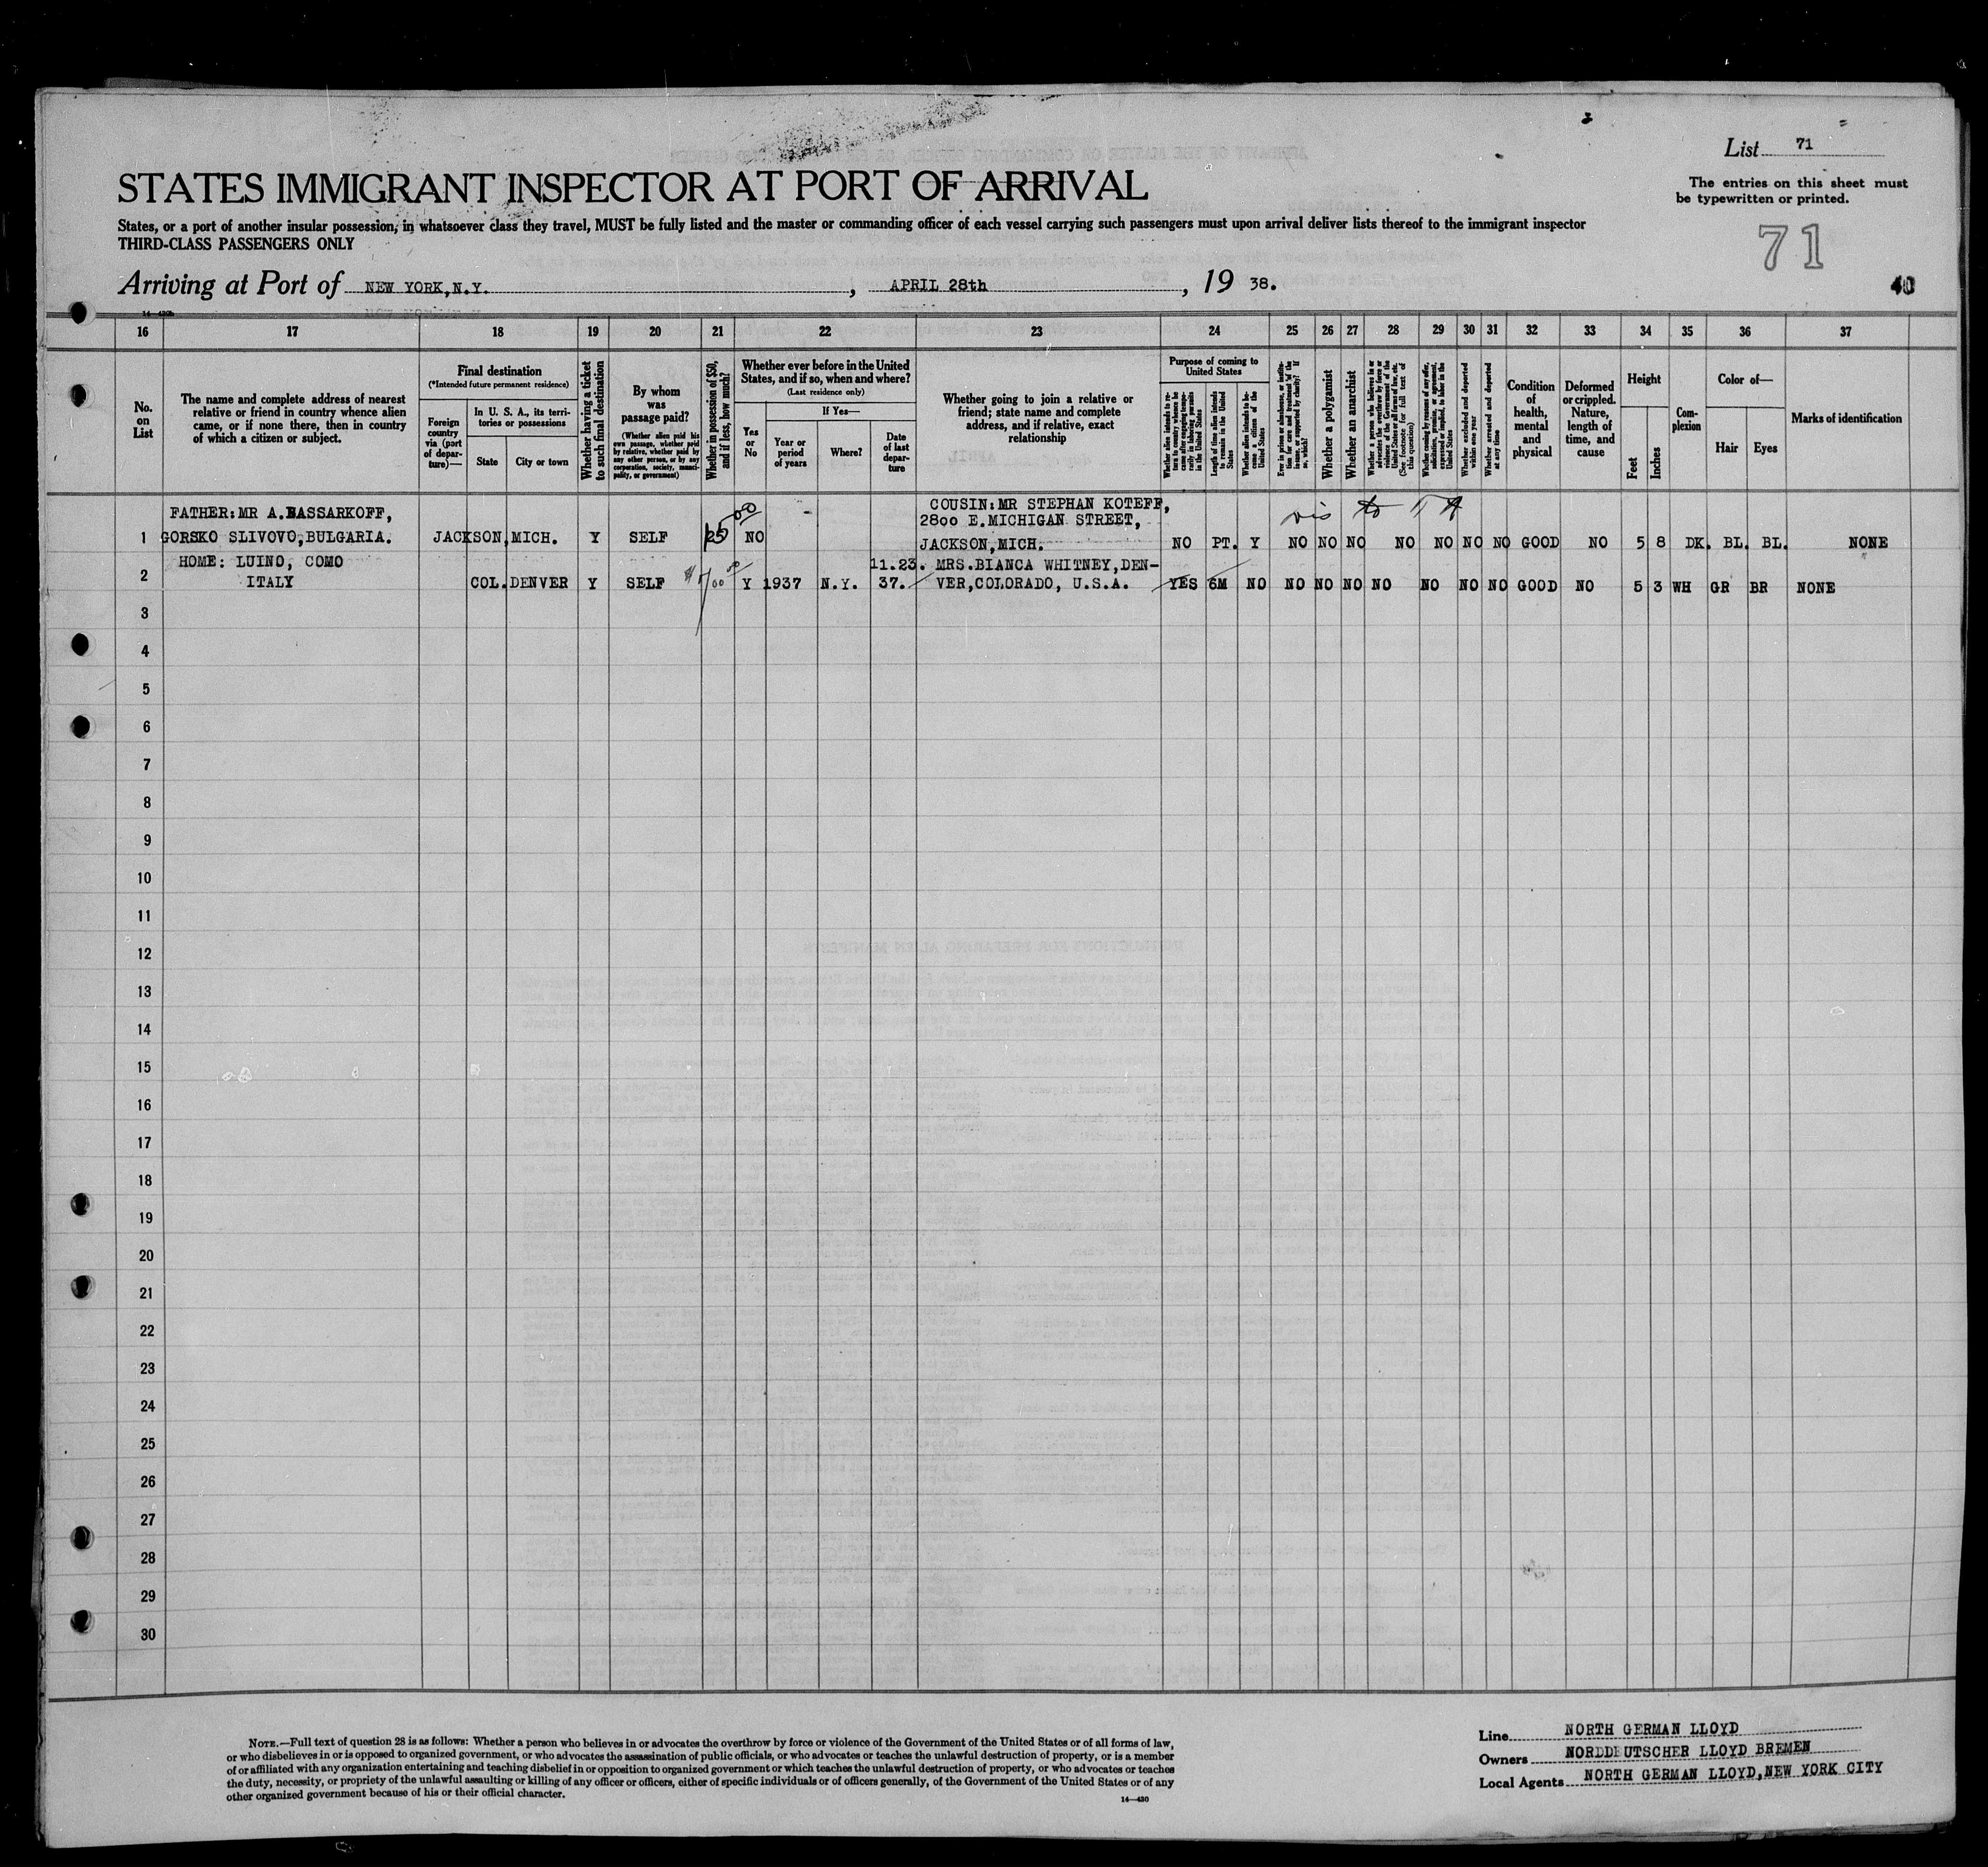 List 71
The entries on this sheet must
be typewritten or printed.
STATES IMMIGRANT INSPECTOR AT PORT OF ARRIVAL
States, or a port of another insular possession, in whatsoever class they travel, MUST be fully listed and the master or commanding officer of each vessel carrying such passengers must upon arrival deliver lists thereof to the immigrant inspector
THIRD-CLASS PASSENGERS ONLY
71
40
Arriving at Port of NEW YORK,N.Y. , APRIL 28th , 19 38.
16 17 18 19 20 21 22 23 24 25 26 27 28 29 30 31 32 33 34 35 36 37
No.
on
List
The name and complete address of nearest
relative or friend in country whence alien
came, or if none there, then in country
of which a citizen or subject.
Final destination
(*Intended future permanent residence)
Foreign
country
via (part
of depar-
ture)—
In U. S. A., its terri-
tories or possessions
State
City or town
Whether having a ticket
to such final destination
By whom
was
passage paid?
(Whether alien paid his
own passage, whether paid
by relative, whether paid by
any other person, or by any
corporation, society, munici-
pality, or government)
Whether in possession of $50,
and if less, how much?
Whether ever before in the United
States, and if so, when and where?
(Last residence only)
Yes
or
No
If Yes—
Year or
period
of years
Where?
Date
of last
depar-
ture
Whether going to join a relative or
friend; state name and complete
address, and if relative, exact
relationship
Purpose of coming to
United States
Length of time alien intends
to remain in the United
States
Whether alien intends to be-
come a citizen of the
United States
Whether a polygamist
Whether an anarchist
Whether excluded and deported
within one year
Whether arrested and deported
at any time
Condition
of
health,
mental
and
physical
Deformed
or crippled.
Nature,
length of
time, and
cause
Height
Feet
Inches
Com-
plexion
Color of—
Hair
Eyes
Marks of identification
FATHER:MR A.BASSARKOFF,
COUSIN:MR STEPHAN KOTEFF,
2800 E.MICHIGAN STREET,
1 GORSKO SLIVOVO,BULGARIA. JACKSON,MICH. Y SELF NO JACKSON,MICH. NO PT. Y NO NO NO NO NO NO NO GOOD NO 5 8 DK. BL. BL. NONE
HOME: LUINO, COMO 11.23. MRS.BIANCA WHITNEY,DEN-
2 ITALY COL. DENVER Y SELF Y 1937 N.Y. 37. VER,COLORADO, U.S.A. YES 6M NO NO NO NO NO NO NO NO GOOD NO 5 3 WH GR BR NONE
3
4
5
6
7
8
9
10
11
12
13
14
15
16
17
18
19
20
21
22
23
24
25
26
27
28
29
30
NOTE.—Full text of question 28 is as follows: Whether a person who believes in or advocates the overthrow by force or violence of the Government of the United States or of all forms of law,
or who disbelieves in or is opposed to organized government, or who advocates the assassination of public officials, or who advocates or teaches the unlawful destruction of property, or is a member
of or affiliated with any organization entertaining and teaching disbelief in or opposition to organized government or which teaches the unlawful destruction of property, or who advocates or teaches
the duty, necessity, or propriety of the unlawful assaulting or killing of any officer or officers, either of specific individuals or of officers generally, of the Government of the United States or of any
other organized government because of his or their official character.
14—430
Line NORTH GERMAN LLOYD
Owners NORDDEUTSCHER LLOYD BREMEN
Local Agents NORTH GERMAN LLOYD,NEW YORK CITY